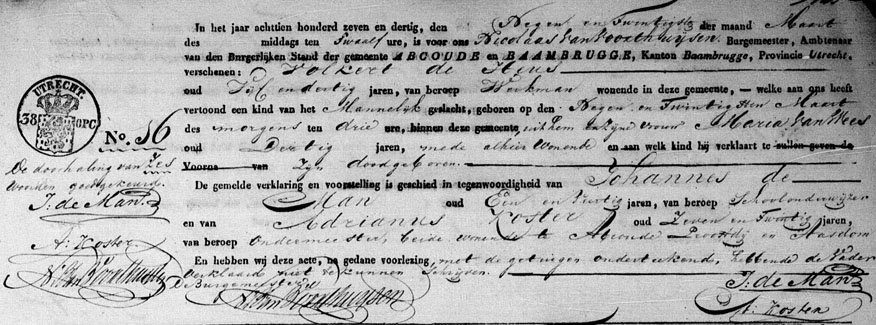 In het jaar achttien honderd zeven en dertig, den Negen en Twintigste der maand Maart
des middags ten Twaalf ure, is voor ons Nicolaas Van Voorthuijsen, Burgemeester, Ambtenaar
van den Burgerlijken Stand der gemeente ABCOUDE en BAAMBRUGGE, Kanton Baambrugge, Provincie Utrecht,
verschenen: Volkert de Hens
oud Vijf en dertig jaren, van beroep Werkman wonende in deze gemeente, — welke aan ons heeft
vertoond een kind van het Mannelijk geslacht, geboren op den Negen en Twintigsten Maart
des morgens ten drie ure, binnen deze gemeente, uit hem en zijne vrouw Maria Van Nes
oud Dertig jaren, mede alhier wonende en aan welk kind hij verklaart te zullen geven de
Voorna van Zijn doodgeboren.
De gemelde verklaring en voorstelling is geschied in tegenwoordigheid van Johannes de
Man oud Een en Veertig jaren, van beroep Schoolonderwijzer
en van Adrianus Koster oud Zeven en Twintig jaren,
van beroep ondermeester, beide wonende te Abcoude Proostdij en Aasdom
En hebben wij deze acte, na gedane voorlezing, met de getuigen onderteekend, hebbende de Vader
verklaard niet te kunnen schrijven.
De Burgemeester
N. Van Voorthuysen
J. de Man
A. Koster
UTRECHT.
38
OPC
No. 16
De doorhaling van Zes
woorden goedgekeurd.
J. de Man
A. Koster
N. Van Voorthuysen